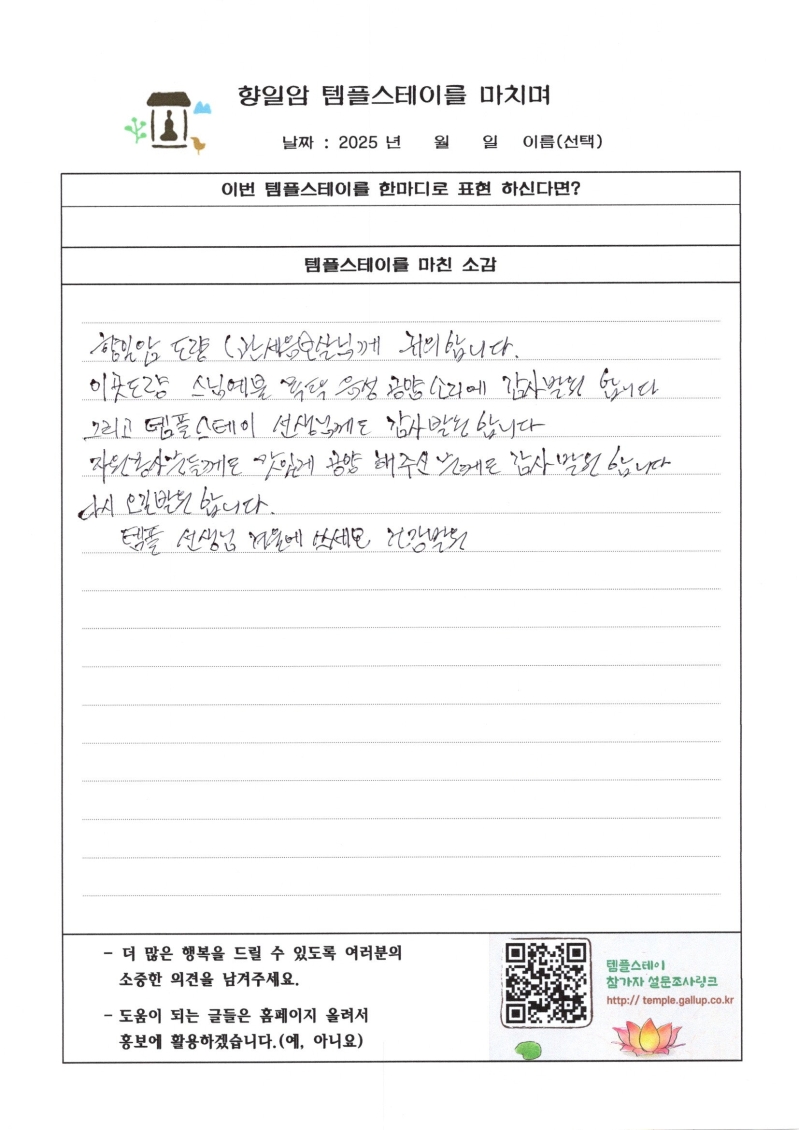 향일암 템플스테이를 마치며
날짜 : 2025 년 월 일 이름(선택)
이번 템플스테이를 한마디로 표현 하신다면?
템플스테이를 마친 소감
향일암 도량 관세음보살님께 귀의합니다.
이곳도량 스님예불 목탁 음성 공양 소리에 감사발원 합니다
그리고 템플스테이 선생님께도 감사발원합니다
자원봉사분들께도 맛있게 공양 해주신 분께도 감사발원 합니다
다시 오길발원 합니다.
템플 선생님 겨울에 건강발원
- 더 많은 행복을 드릴 수 있도록 여러분의
소중한 의견을 남겨주세요.
- 도움이 되는 글들은 홈페이지 올려서
홍보에 활용하겠습니다.(예, 아니요)
템플스테이
참가자 설문조사링크
http:// temple.gallup.co.kr